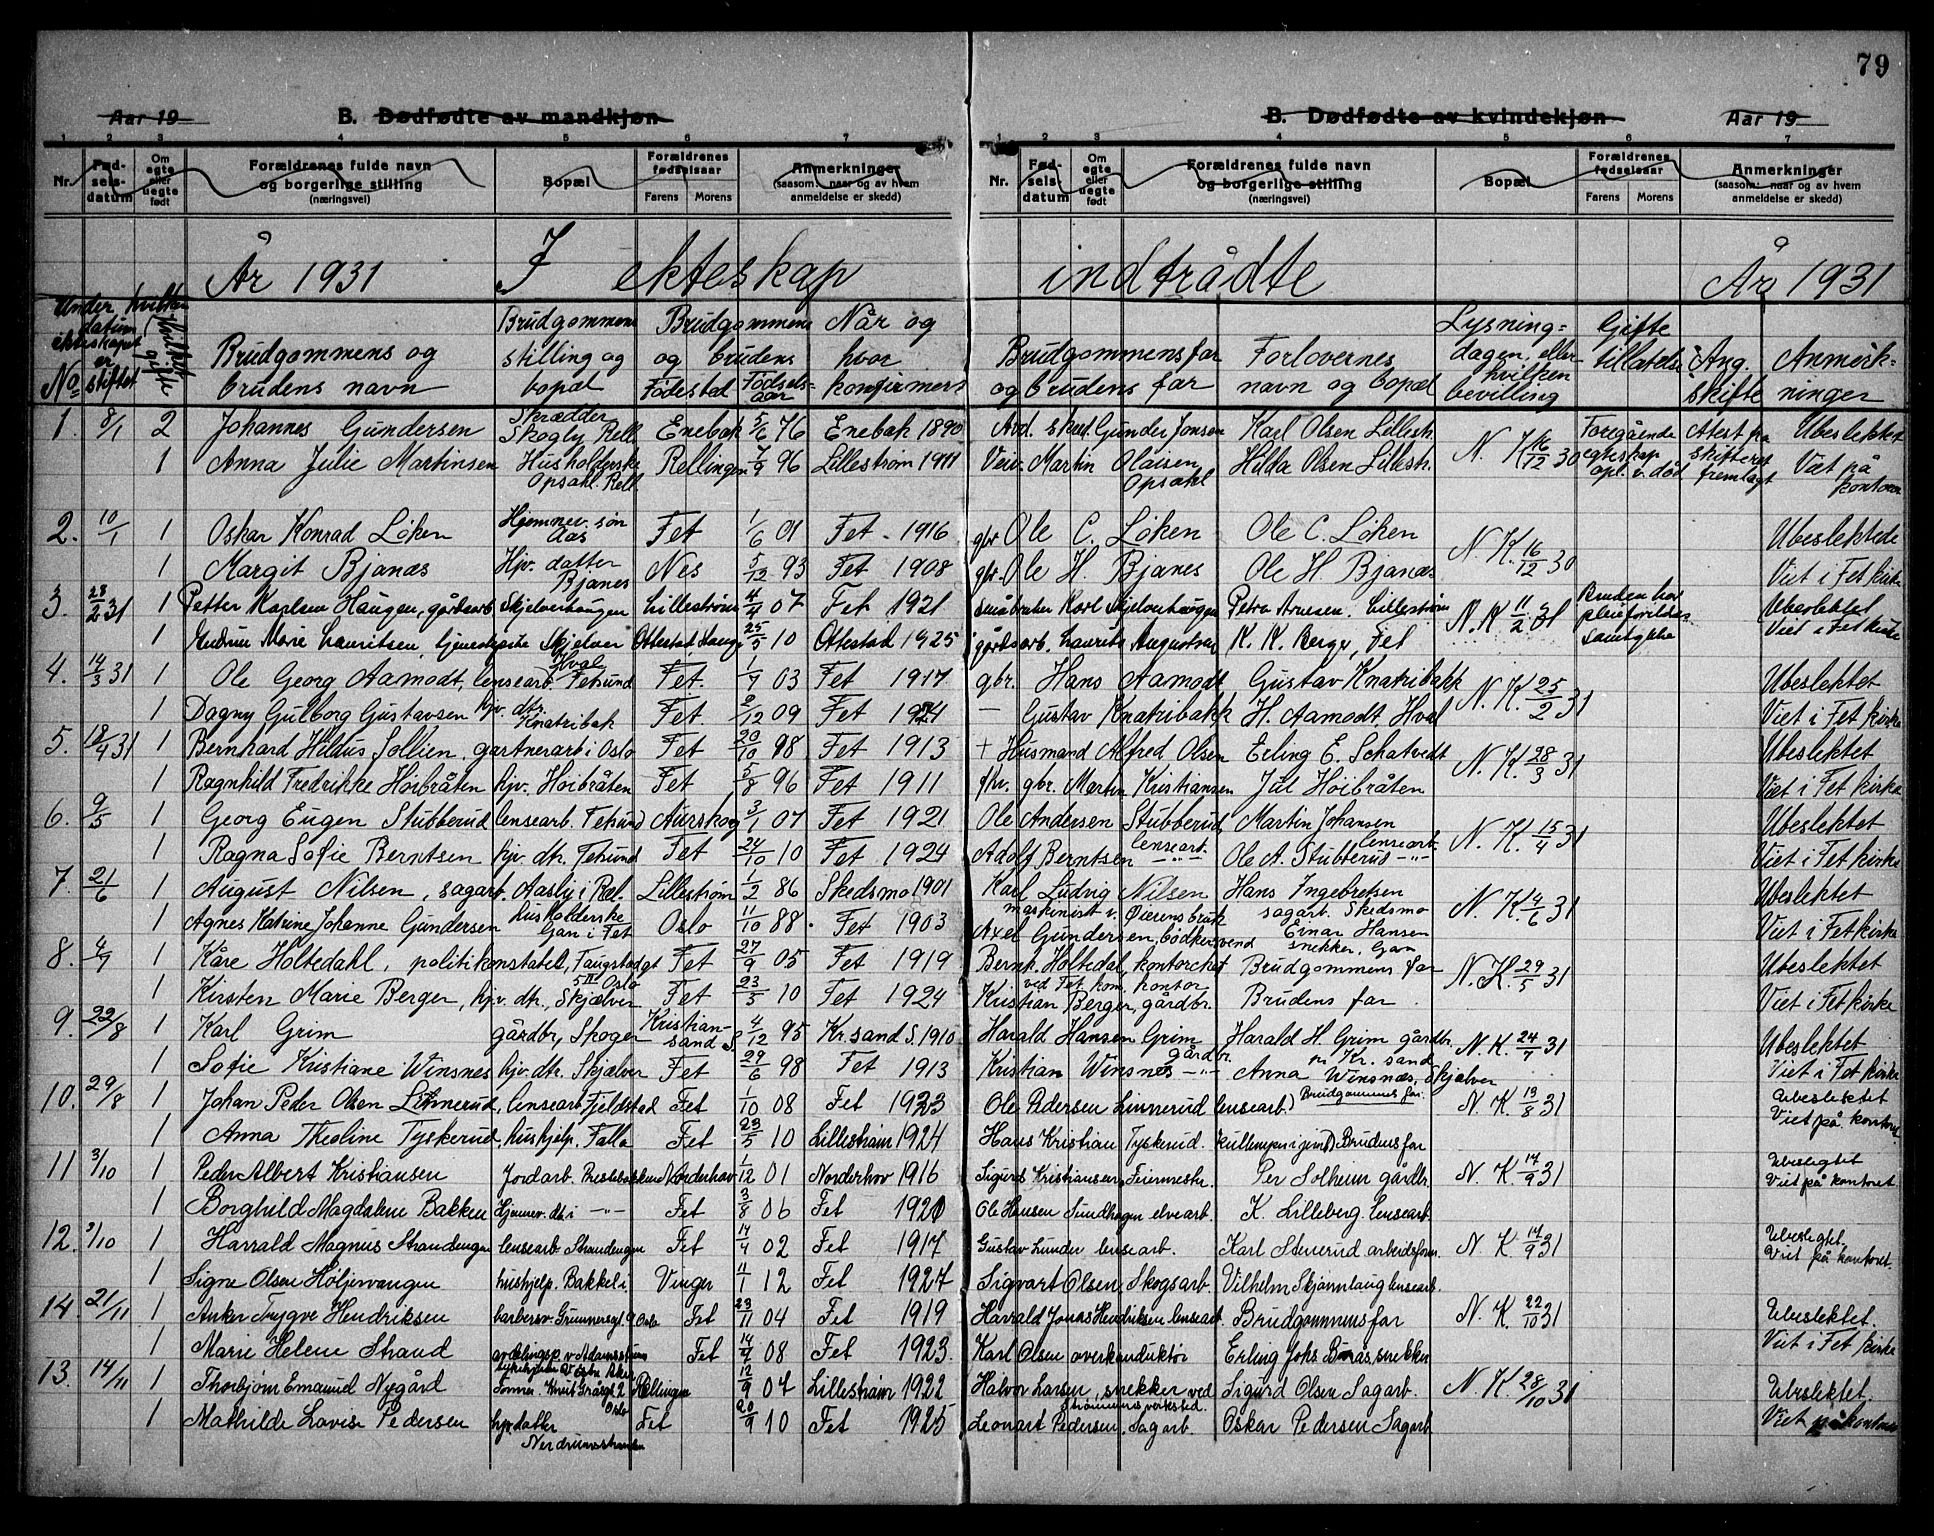 79
Aar 19 B. Dødfødte av mandkjøn
B. Dødfødte av kvindekjøn Aar 19
1 2 3 4 5 6 7
1 2 3 4 5 6 7
Nr. Fød-selsdatum Om egte eller uegte født Forældrenes fulde navn og borgerlige stilling (næringsvei) Bopæl Forældrenes fødselsaar Farens Morens Anmerkninger (saasom: naar og av hvem anmeldelse er skedd)
Nr. Fød-selsdatum Om egte eller uegte født Forældrenes fulde navn og borgerlige stilling (næringsvei) Bopæl Forældrenes fødselsaar Farens Morens Anmerkninger (saasom: naar og av hvem anmeldelse er skedd)
År 1931 I ekteskap indtrådte År 1931
No Under hvilken datum ekteskapet er stiftet Brudgommens og brudens navn Brudgommens stilling og bopæl Brudgommens og brudens Fødested Fødsels-aar Når og hvor konfirmert Brudgommens far og brudens far Forlovernes navn og bopæl Lysning=dagen, eller hvilken bevilling Gifte tillatelse Ang. skifte Anmerk=ninger
1. 8/1 2 Johannes Gundersen Skrædder Skogly Rell. Enebak 5/6 76 Enebak 1890 Gunder Jonsen Karl Olsen Lillestr. N. K. 16/12 30 Foregående egteskap opl. v. død Atest fra skifteret fremlagt Ubeslektet
1 Anna Julie Martinsen Husholderske Opsahl. Rell. Rellingen 7/9 96 Lillestrøm 1911 Martin Olaisen Opsahl Hilda Olsen Lillestr. Viet på kontoret
2. 10/1 1 Oskar Konrad Löken Hjemmev. søn Aas Fet 1/6 01 Fet 1916 gbr Ole C. Löken Ole C. Löken N. K. 16/12 30 Ubeslektede
1 Margit Bjanæs Hjv. datter Bjanes Nes 5/12 93 Fet 1908 gbr. Ole H. Bjanes Ole H. Bjanæs Viet i Fet kirke
3. 28/2 31 1 Petter Karlsen Haugen, gårdsarb Skjelverhaugen Lillestrøm 4/4 07 Fet 1921 småbruker Karl Skjelverhaugen Petra Arnesen. Lillestrøm N. K. 11/2 31 Bruden har pleieforeldres samtykke Ubeslektet
1 Gudrun Marie Lauritsen, Skjelver Ottestad 25/5 10 Ottestad 1925 gårdsarb. Laurits Augustsen K. K. Berge, Fet Viet i Fet kirke
4. 14/3 31 1 Ole Georg Aamodt, lensearb. Hval Fetsund Fet. 1/7 03 Fet 1917 gbr. Hans Aamodt Gustav Knatribakk N. K. 25/2 31 Ubeslektet
1 Dagny Gulborg Gustavsen hjv. dtr. Knatribak Fet. 2/12 09 Fet 1924 — Gustav Knatribakk H. Aamodt, Hval Viet i Fet Kirke
5. 18/4 31 1 Bernhard Hilaus Sollien, gartnerarb i Oslo Fet 20/10 98 Fet 1913 + Husmand Alfred Olsen Erling E. Schatvedt N. K. 28/3 31 Ubeslektet
1 Ragnhild Fredrikke Höibråten hjv. Höibråten Fet 5/8 96 Fet 1911 fhv. gbr. Martin Kristiansen Jul Höibråten Viet i Fet kirke
6. 9/5 1 Georg Eugen Stubberud lensearb. Fetsund Aurskog 3/1 07 Fet 1921 Ole Andersen Stubberud, lensearb. Martin Johansen lensearb. N. K. 15/4 31 Ubeslektet
1 Ragna Sofie Berntsen hjv. dtr. Fetsund Fet 24/10 10 Fet 1924 Adolf Berntsen —"— Ole A. Stubberud —"— Viet i Fet kirke
7. 21/6 1 August Nilsen, sagarb. Aasly i Ræl. Lillestrøm 1/2 86 Skedsmo 1901 Karl Ludvig Nilsen maskinist v. Qværnsbruk Hans Ingebretsen sagarb. Skedsmo N. K. 4/6 31 Ubeslektet
1 Agnes Katrine Johanne Gundersen husholderske Gan i Fet Oslo 11/10 88 Fet 1903 Axel Gundersen, bødkersvend Einar Hansen snekker, Gan Viet i Fet kirke
8. 4/7 1 Kåre Holtedahl, politikonstabel, Tangstadgt 5 III Oslo Fet 27/9 05 Fet 1919 Bernh. Holtedal, kontorchef ved Fet kom. kontor Brudgommens far N. K. 29/5 31 Ubeslektet
1 Kirsten Marie Berger, hjv. dtr., Skjælver Fet 23/3 10 Fet 1924 Kristian Berger, gårdbr. Brudens far Viet i Fet kirke
9. 22/8 1 Karl Grim gårdbr, Skoger Kristian-sand S. 4/12 95 Kr.sand S. 1910 Harald Hansen Grim gårdbr. Harald H. Grim gårdbr. pr Kr. sand N. K. 24/7 31 Ubeslektet
1 Sofie Kristiane Winsnes hjv. dtr. Skjælver Fet 29/6 98 Fet 1913 Kristian Winsnes —"— Anna Winsnæs, Skjelver Viet i Fet kirke
10. 29/8 1 Johan Peder Olsen Linnerud, lensearb. Fjeldstad Fet 1/10 08 Fet 1923 Ole Pedersen Linnerud lensearb. Brudgommens far. N. K. 13/8 31 Ubeslektet
1 Anna Theoline Tyskerud, hushjelp. Falla Fet 23/5 10 Lillestrøm 1924 Hans Kristian Tyskerud. Brudens far Viet på kontoret
11 3/10 1 Peder Albert Kristiansen Jordarb. Prestebakken Norderhov 1/12 01 Norderhov 1916 Sigurd Kristiansen, Feiermester Per Solheim gårdbr. N. K. 14/9 31 Ubeslegtet
1 Borghild Magdalene Bakken Hjemmev. dtr i —"— Fet 3/8 06 Fet 1920 Ole Hansen Sundhagen elvearb. K. Lilleberg. lensearb. Viet på kontoret
12. 3/10 1 Harrald Magnus Strandengen lensearb. Strandengen Fet 14/4 02 Fet 1917 Gustav Lunder lensearb. Karl Stenerud arbeidsform. N. K. 14/9 31 Ubeslegtet
1 Signe Olsen Höljervangen hushjelp. Bakkeli Vinger 11/1 12 Fet 1927 Sigvart Olsen Skogsarb. Vilhelm Skjønnhaug lensearb. Viet på kontoret.
14. 21/11 1 Anker Trygve Hendriksen barbersv. Grunnersgt. 9 Oslo Fet 23/11 04 Fet 1919 Harrald Jonas Hendriksen lensearb. Brudgommens far N. K. 22/10 31 Ubeslektet.
1 Marie Helene Strand avdelingsp. v. Fet 14/4 08 Fet 1923 Karl Olsen overkonduktør Erling Johs Borås, snekker Viet i Fet kirke
13. 14/11 1 Thorbjørn Emanuel Nygård Tomrer. Oslo Rellingen 12/9 07 Lillestrøm 1922 Halvor Larsen, snekker ved Strømmens verksted. Sigurd Olsen Sagarb. N. K. 28/10 31 Ubeslektet.
1 Mathilde Lovise Pedersen hjv. datter Nerdrumsstranden Fet 20/9 10 Fet 1925 Leonart Pedersen, Sagarb. Oskar Pedersen Sagarb. Viet på kontoret